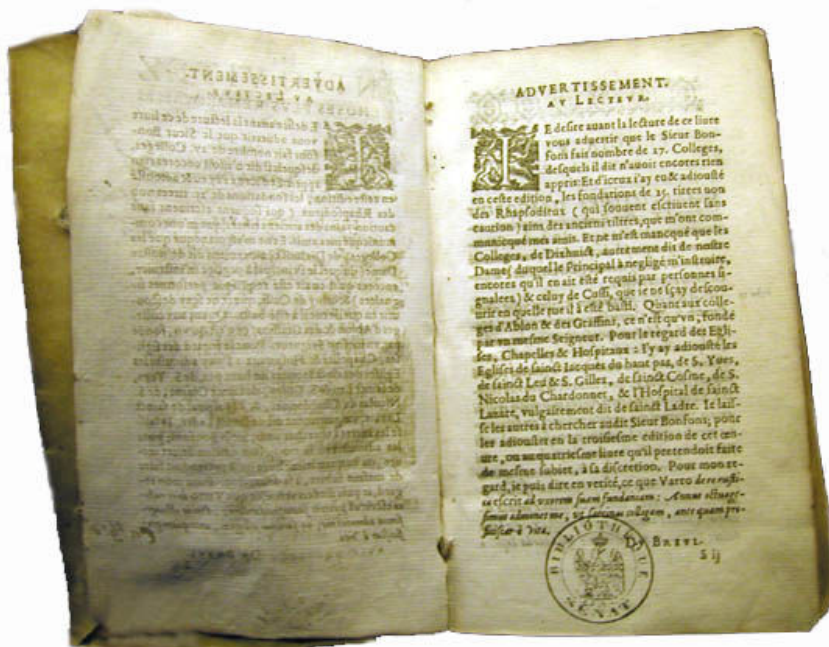 ADVERTISSEMENT.
AV LECTEVR.
IE desire auant la lecture de ce liure
vous aduertir que le Sieur Bon-
fons fait nombre de 27. Colleges,
desquels il dit n'auoir encores rien
appris: Et d'iceux i'ay eu & adiousté
en ceste edition, les fondations de 25. tirees non
des Rhapsoditux ( qui souuent escriuent sans
caution) ains des anciens tiltres, que m'ont com-
muniqué mes amis. Et ne m'est manqué que les
Colleges, de Dixhuict, autrement dit de nostre
Dame( duquel le Principal à negligé m'instruire,
encores qu'il en ait esté requis par personnes si-
gnalees) & celuy de Cussi, que ie ne sçay descou-
urir en quelle rue il a esté basti. Quant aux colle-
ges d'Ablon & des Grassins, ce n'est qu'vn, fondé
par vn mesme Seigneur. Pour le regard des Egli-
ses, Chapelles & Hospitaux: I'y ay adiousté les
Eglises de sainct Iacques du haut pas, de S. Yues,
de sainct Leu & S. Gilles, de sainct Cosme, de S.
Nicolas du Chardonnet, & l'Hospital de sainct
Lazare, vulgairement dit de sainct Ladre. Ie lais-
se les autres à chercher audit Sieur Bonfons; pour
les adiouster en la troisiesme edition de cet œu-
ure, ou au quatriesme liure qu'il pretendoit faire
de mesme subiet, à sa discretion. Pour mon re-
gard, ie puis dire en verité, ce que Varro de re rusti-
ca escrit ad vxorem suam fundaniam: Annus octuage-
simus admonet me, vt sarcinas colligam, ante quam pro-
ficiscar è vita.
BREVL.
S ij
BIBLIOTHEQUE
SENAT